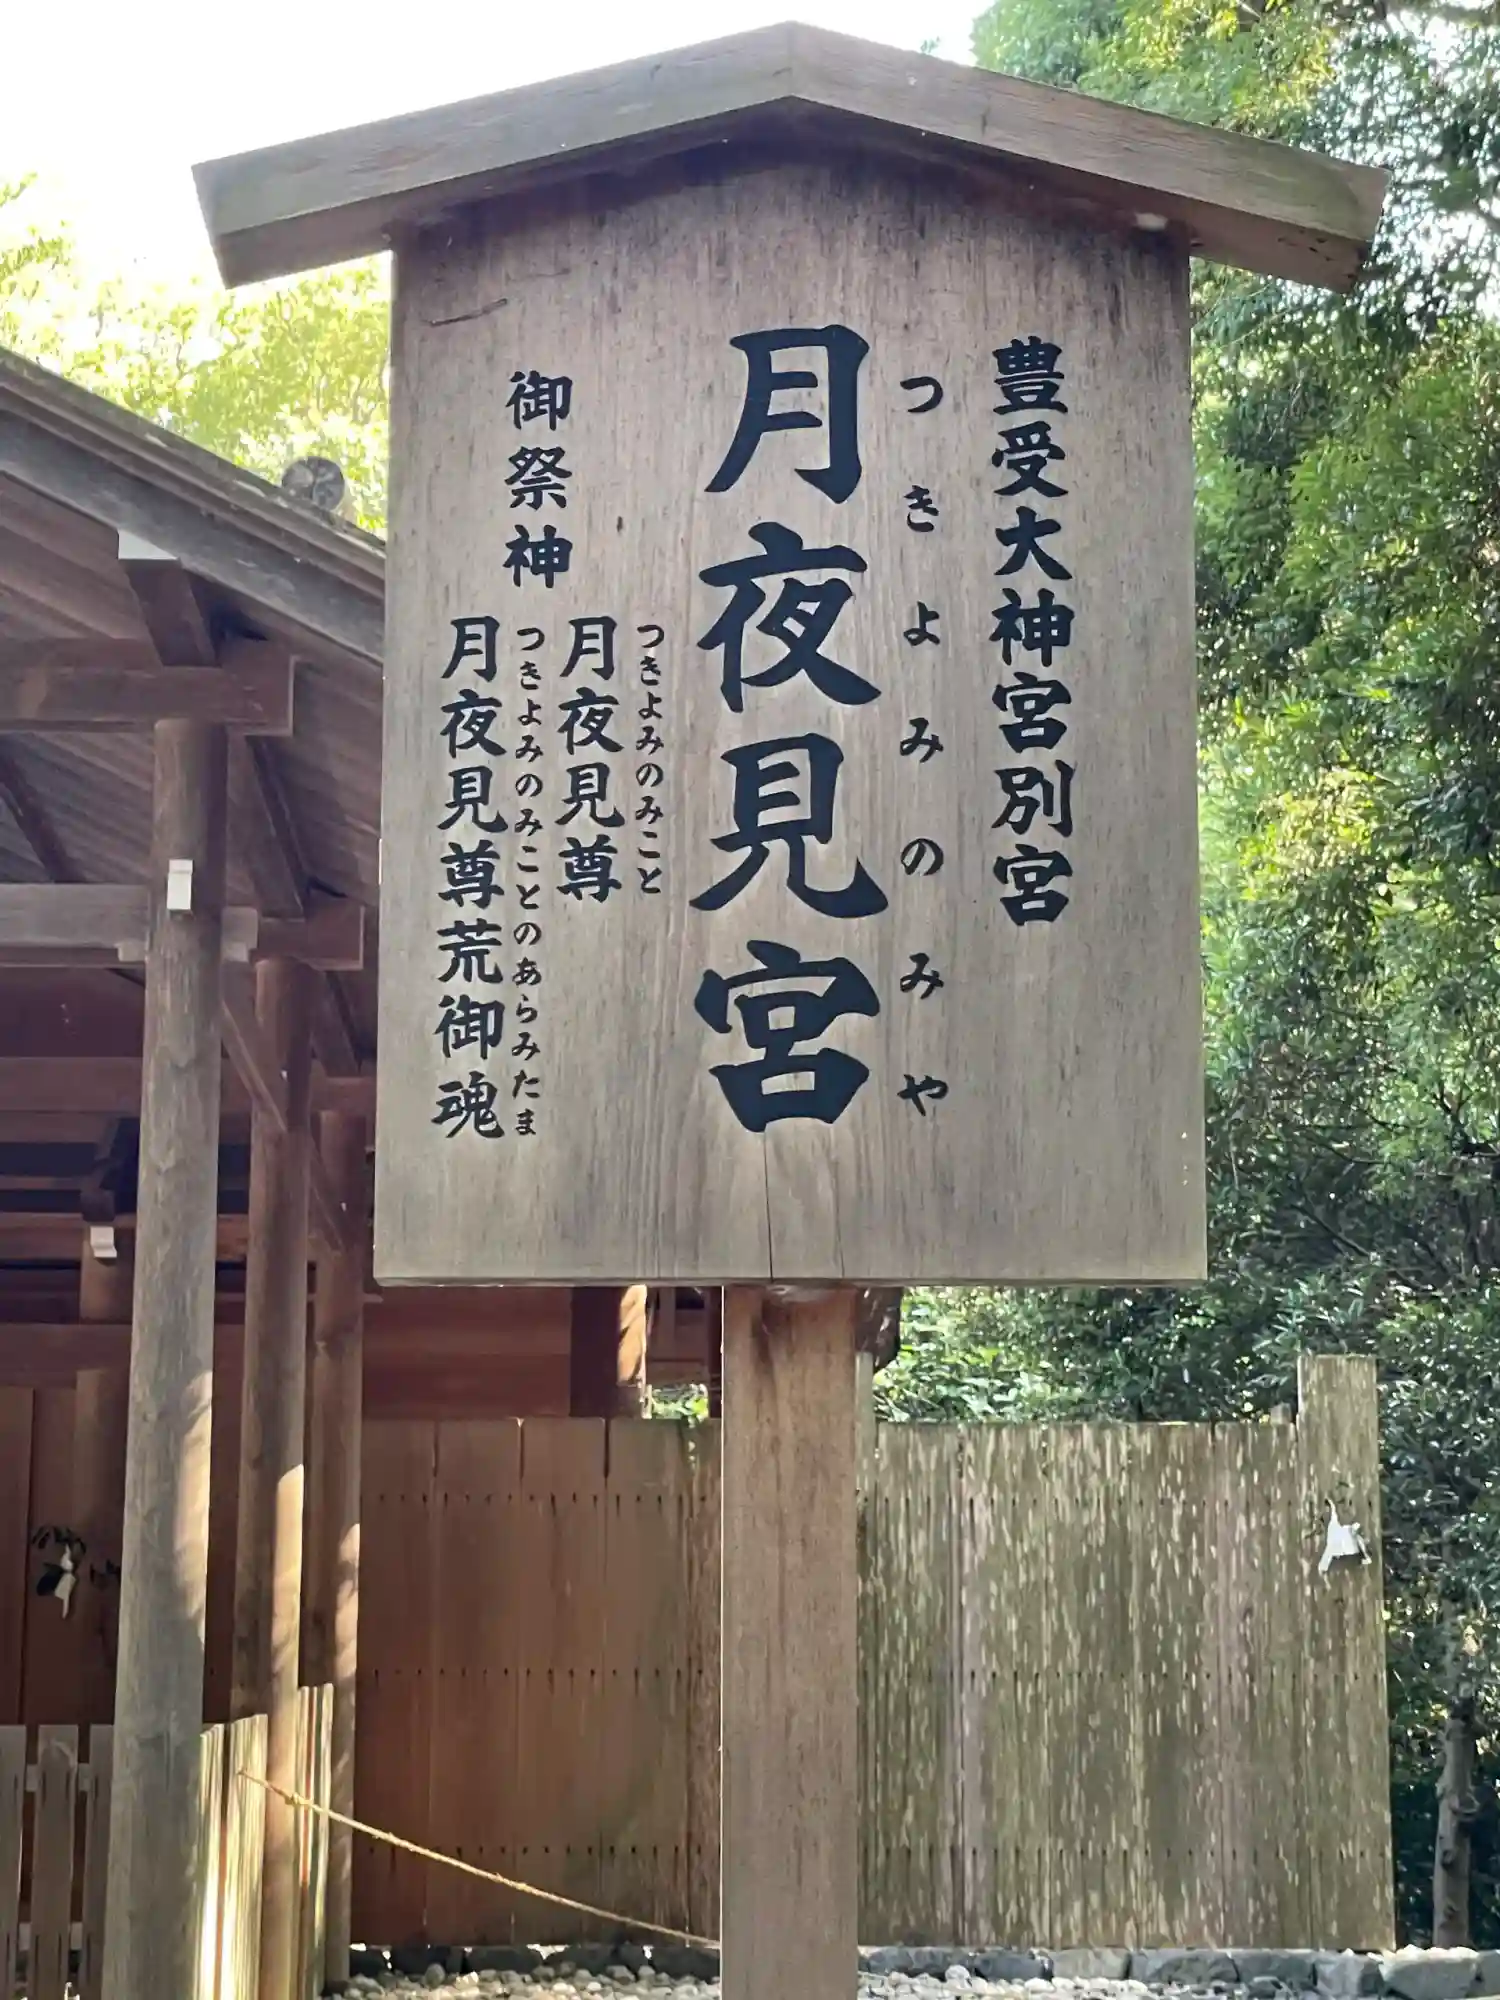 豊受大神宮別宮
つきよみのみや
月夜見宮
御祭神
つきよみのみこと
月夜見尊
つきよみのみことのあらみたま
月夜見尊荒御魂